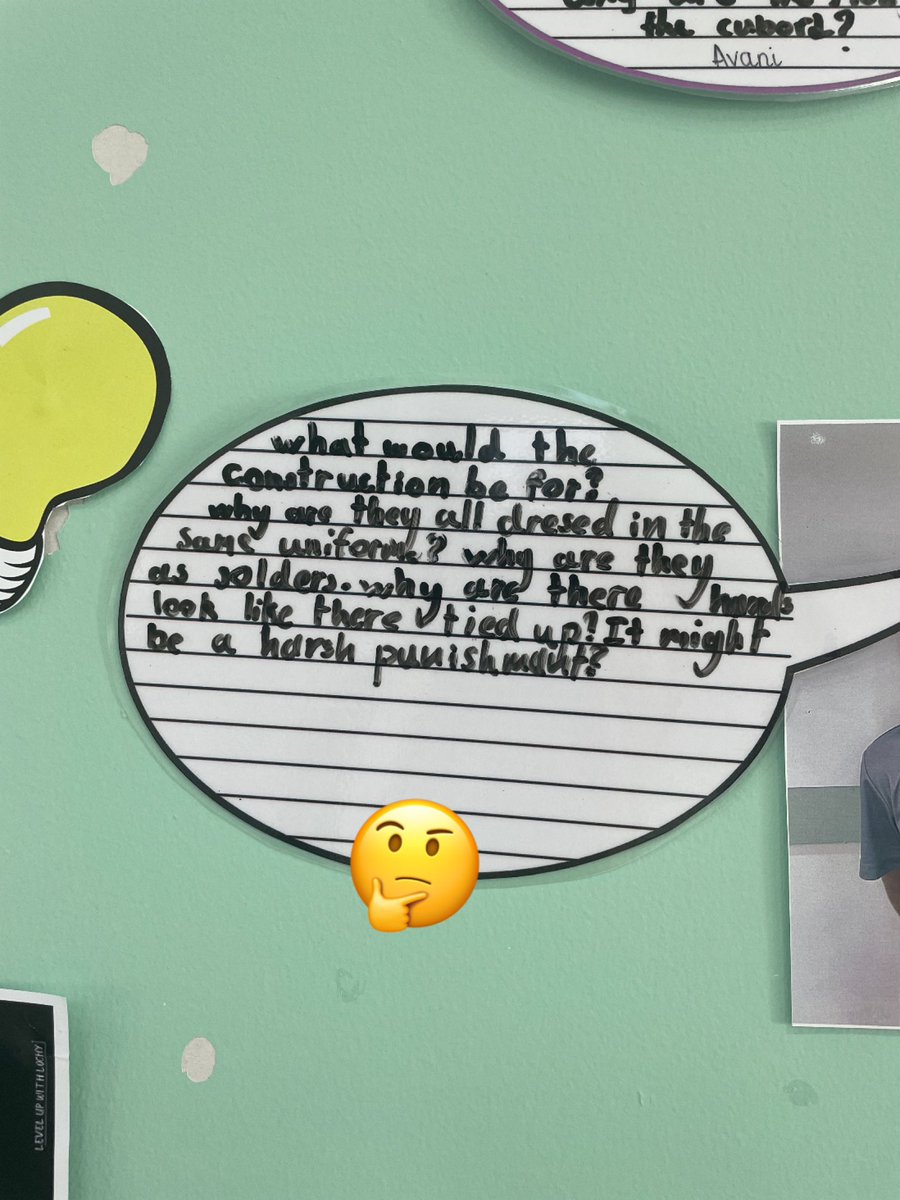 the cubord?
Avani
what would the
construction be for?
why are they all dresed in the
same uniform? why are they
as solders. why are there hands
look like there tied up? It might
be a harsh punishmant?
LEVEL UP WITH LOCHY